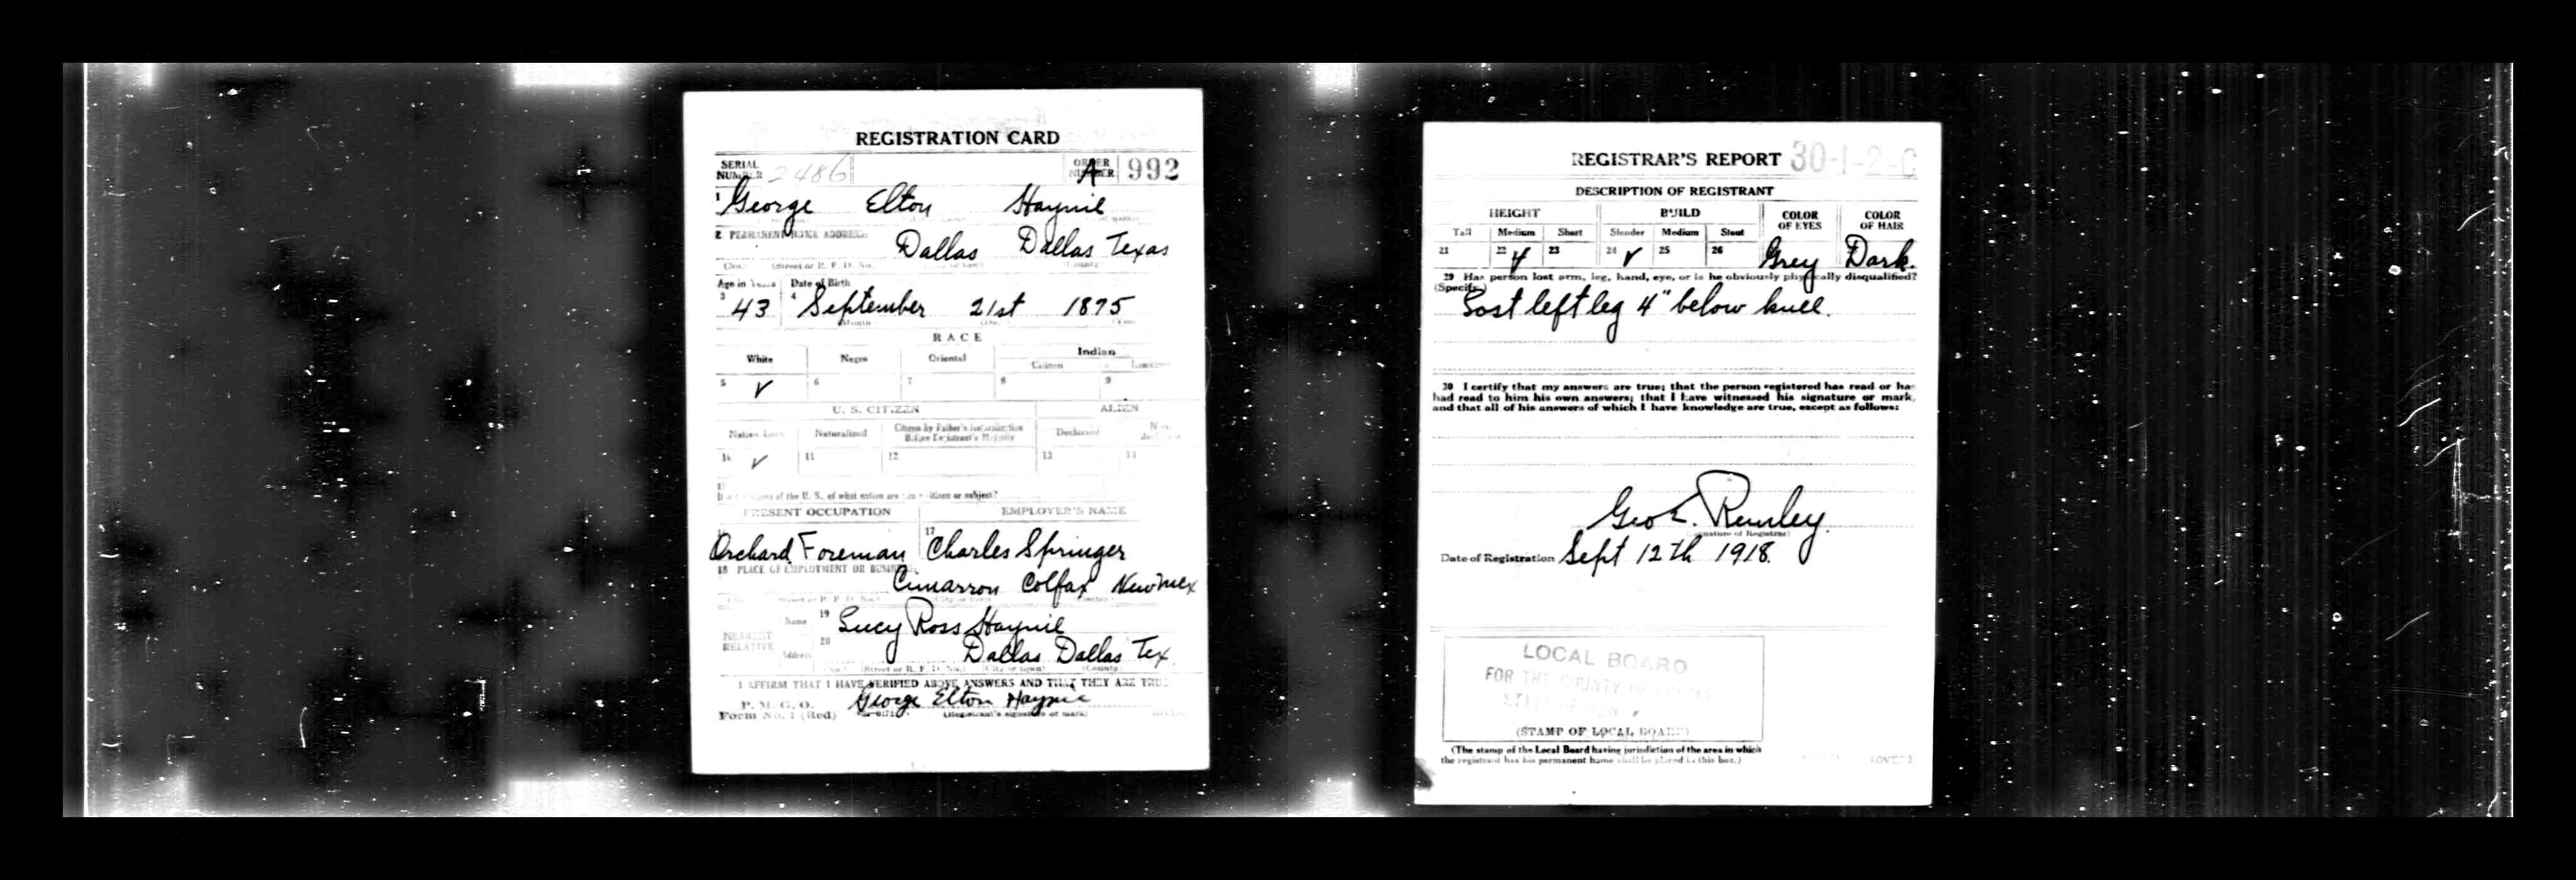 REGISTRATION CARD
SERIAL NUMBER 2486 ORDER NUMBER A 992
1 George Elton Haynie
2 PERMANENT HOME ADDRESS:
Dallas Dallas Texas
(No.) (Street or R. F. D. No.) (City or town) (County)
Age in Years Date of Birth
3 43 4 September 21st 1875
(Month) (Day) (Year)
RACE
White Negro Oriental Indian
Citizen
5 ✓ 6 7 8 9
U. S. CITIZEN ALIEN
Native Born Naturalized Citizen by Father's Naturalization Before Registrant's Majority Declared Non-declarant
10 ✓ 11 12 13 14
15 of the U. S., of what nation are you a citizen or subject?
PRESENT OCCUPATION EMPLOYER'S NAME
16 Orchard Foreman 17 Charles Springer
18 PLACE OF EMPLOYMENT OR BUSINESS:
Cimarron Colfax New Mex
(No.) (Street or R. F. D. No.) (City or town) (County)
NEAREST RELATIVE
Name 19 Lucy Ross Haynie
Address 20 Dallas Dallas Tex.
(No.) (Street or R. F. D. No.) (City or town) (County)
I AFFIRM THAT I HAVE VERIFIED ABOVE ANSWERS AND THAT THEY ARE TRUE
P. M. G. O.
Form No. 1 (Red) George Elton Haynie
(Registrant's signature or mark)
REGISTRAR'S REPORT 30-1-2-C
DESCRIPTION OF REGISTRANT
HEIGHT BUILD COLOR OF EYES COLOR OF HAIR
Tall Medium Short Slender Medium Stout
21 22 ✓ 23 24 ✓ 25 26 Grey Dark.
29 Has person lost arm, leg, hand, eye, or is he obviously physically disqualified?
(Specify.)
Lost left leg 4" below knee.
30 I certify that my answers are true; that the person registered has read or has
had read to him his own answers; that I have witnessed his signature or mark,
and that all of his answers of which I have knowledge are true, except as follows:
Geo E. Remley.
(Signature of Registrar)
Date of Registration Sept 12th 1918.
LOCAL BOARD
FOR THE COUNTY OF
STATE OF NEW
(STAMP OF LOCAL BOARD)
(The stamp of the Local Board having jurisdiction of the area in which
the registrant has his permanent home shall be placed in this box.)
(OVER)